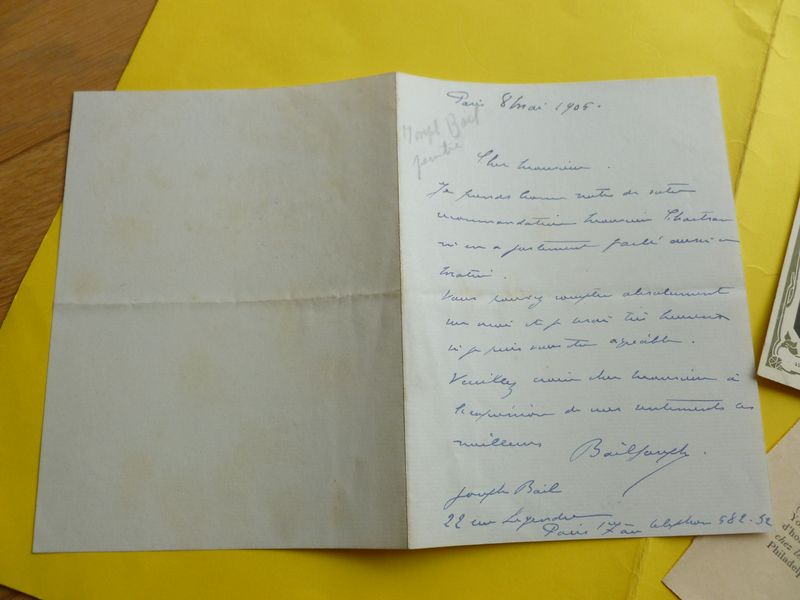 Paris 8 mai 1905.
Joseph Bail
peintre
Cher monsieur.
Je prends bonne note de votre
recommandation monsieur Chartran
m'en a justement parlé aussi ce
matin.
Vous pouvez compter absolument
sur moi et je serai très heureux
si je puis vous être agréable.
Veuillez croire cher monsieur à
l'expression de mes sentiments les
meilleurs
Bail Joseph.
Joseph Bail
22 rue Legendre
Paris 17 telephone 582-52
Yo
d'ho
chez
Philadelp